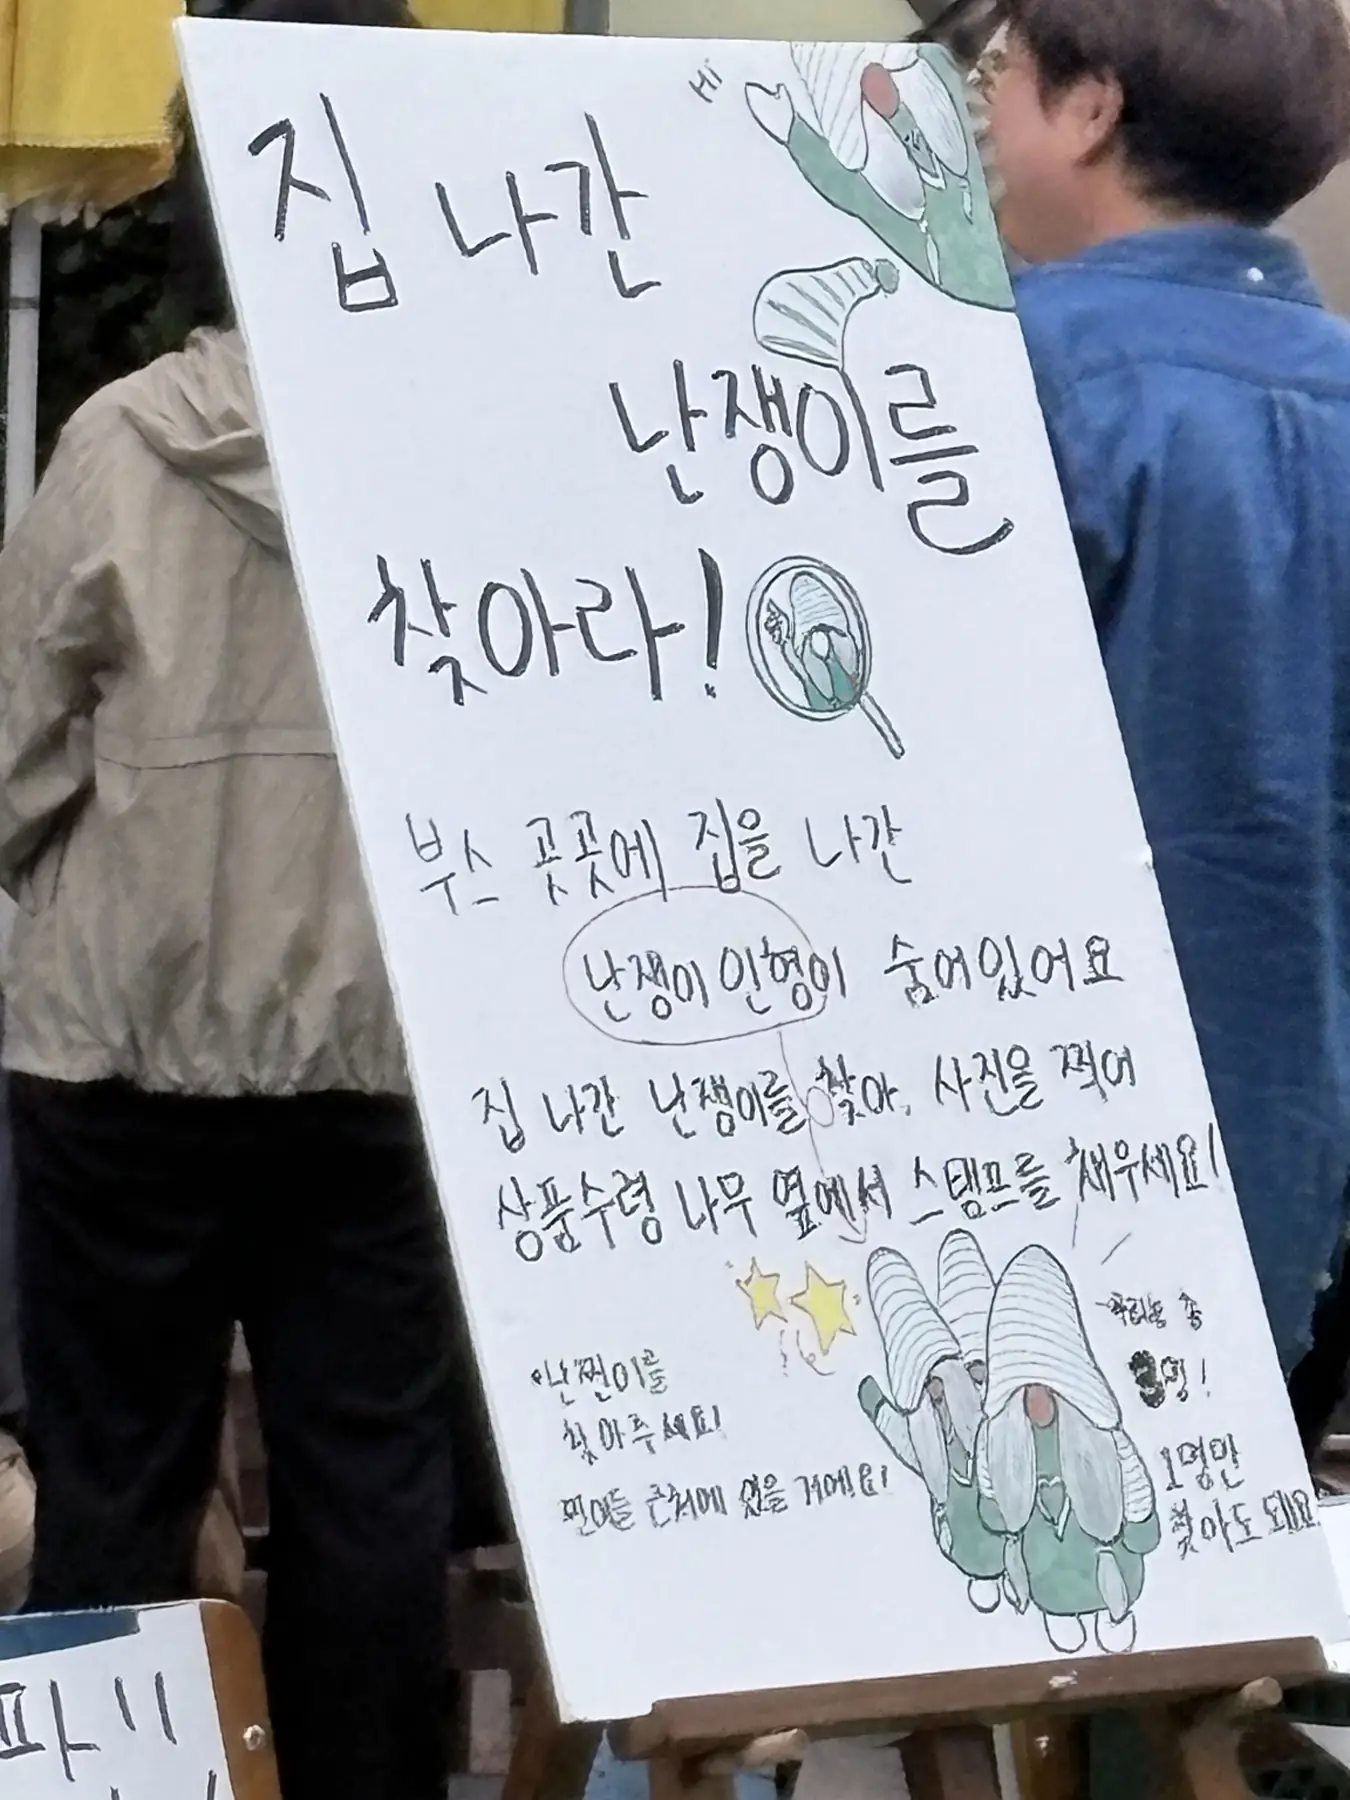 Hi
집 나간
난쟁이를
찾아라!
부스 곳곳에 집을 나간
난쟁이 인형이 숨어있어요
집 나간 난쟁이를 찾아, 사진을 찍어
상품수령 나무 옆에서 스탬프를 채우세요!
총
명!
찾아주세요!
근처에 있을 거예요!
1명만
찾아도 돼요
파